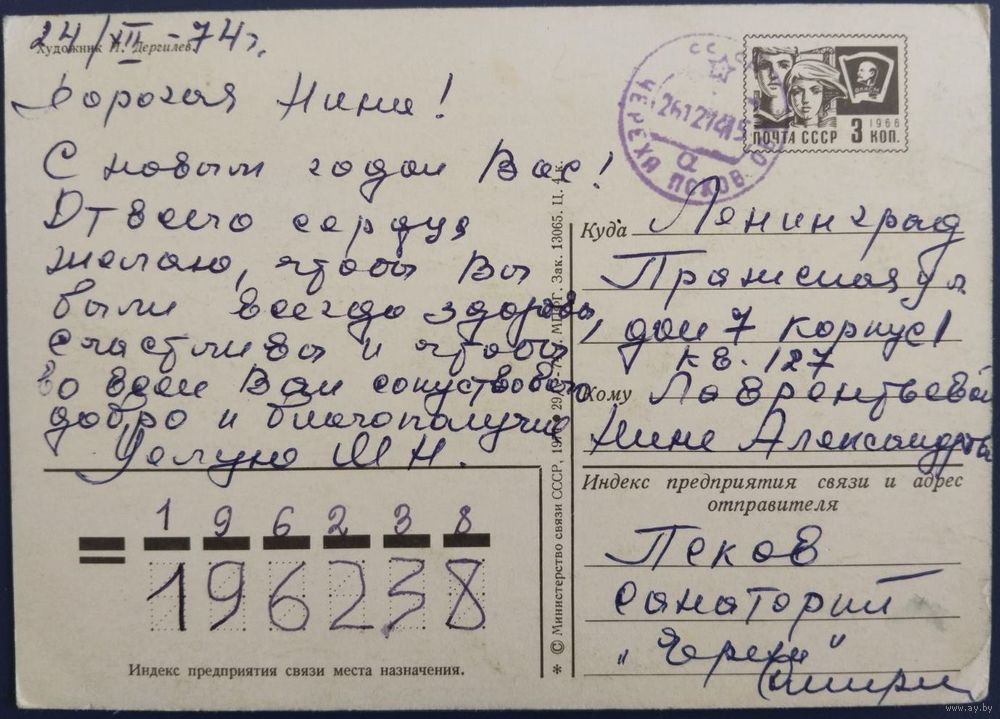 24/XII-74г.
Художник П. Дергилев
Дорогая Нина!
С новым годом Вас!
От всего сердца
желаю, чтобы Вы
были всегда здоровы,
счастливы и чтобы
во всем Вам сопуствовало
добро и благополучие
Целую М Н.
СССР
ЧЕРЕХА ПСКОВ. О
а
ВЛКСМ
1966
ПОЧТА СССР 3 КОП.
Куда Ленинград
Пражская ул
дом 7 корпус 1
кв. 127
Кому Лаврентьевой
Нине Александровне
Индекс предприятия связи и адрес
отправителя
Псков
санаторий
„Череха"
1 9 6 2 3 8
196238
Индекс предприятия связи места назначения.
* © Министерство связи СССР, МПФГ. Зак. 13065. Ц. 4 к.
www.ay.by